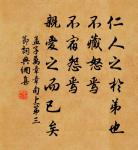 仁人之於弟也
不藏怒焉
不宿怨焉
親愛之而已矣
孟子萬章章句上第三
節詞典網